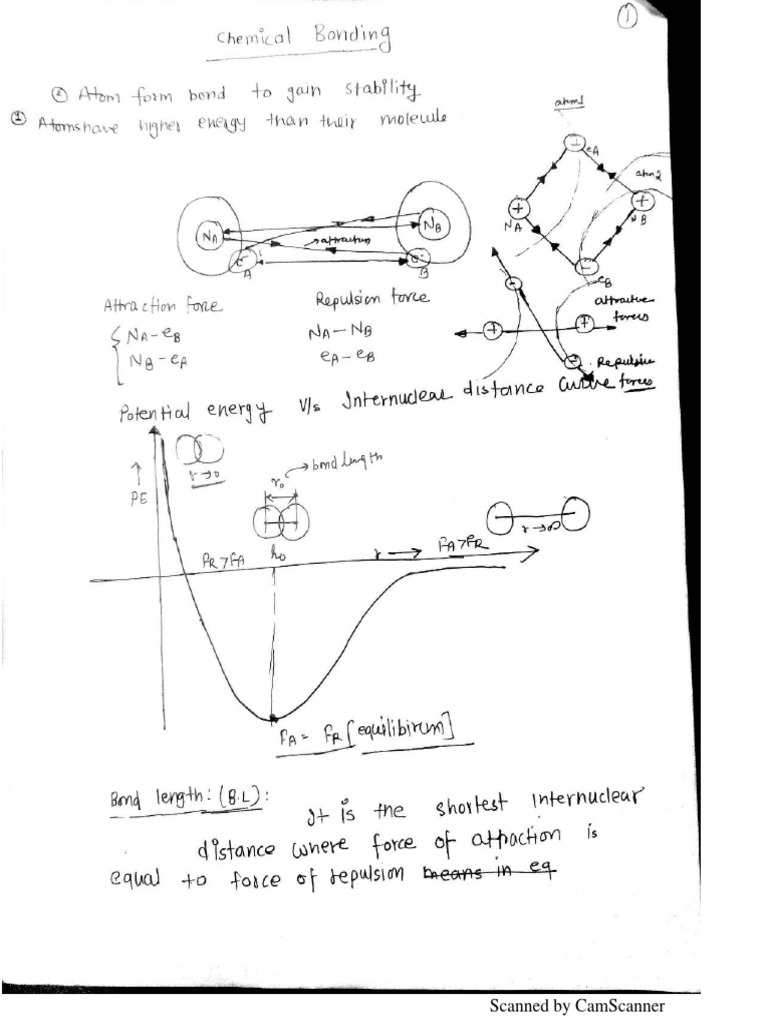 ①
Chemical Bonding
② Atom form bond to gain stability
① Atoms have higher energy than their molecule
atom1
eA
atom 2
NA
NB
eB
NA
NB
attraction
A
B
Attraction force
Repulsion force
NA-eB
NB-eA
NA-NB
eA-eB
attractive forces
Repulsive forces
Potential energy V/s Internuclear distance curve
r→0
↑
PE
r₀ → bond length
r→∞
FR>FA
r →
FA>FR
FA = FR [equilibirum]
Bond length: (B.L):
It is the shortest internuclear
distance where force of attraction is
equal to force of repulsion means in eq
Scanned by CamScanner